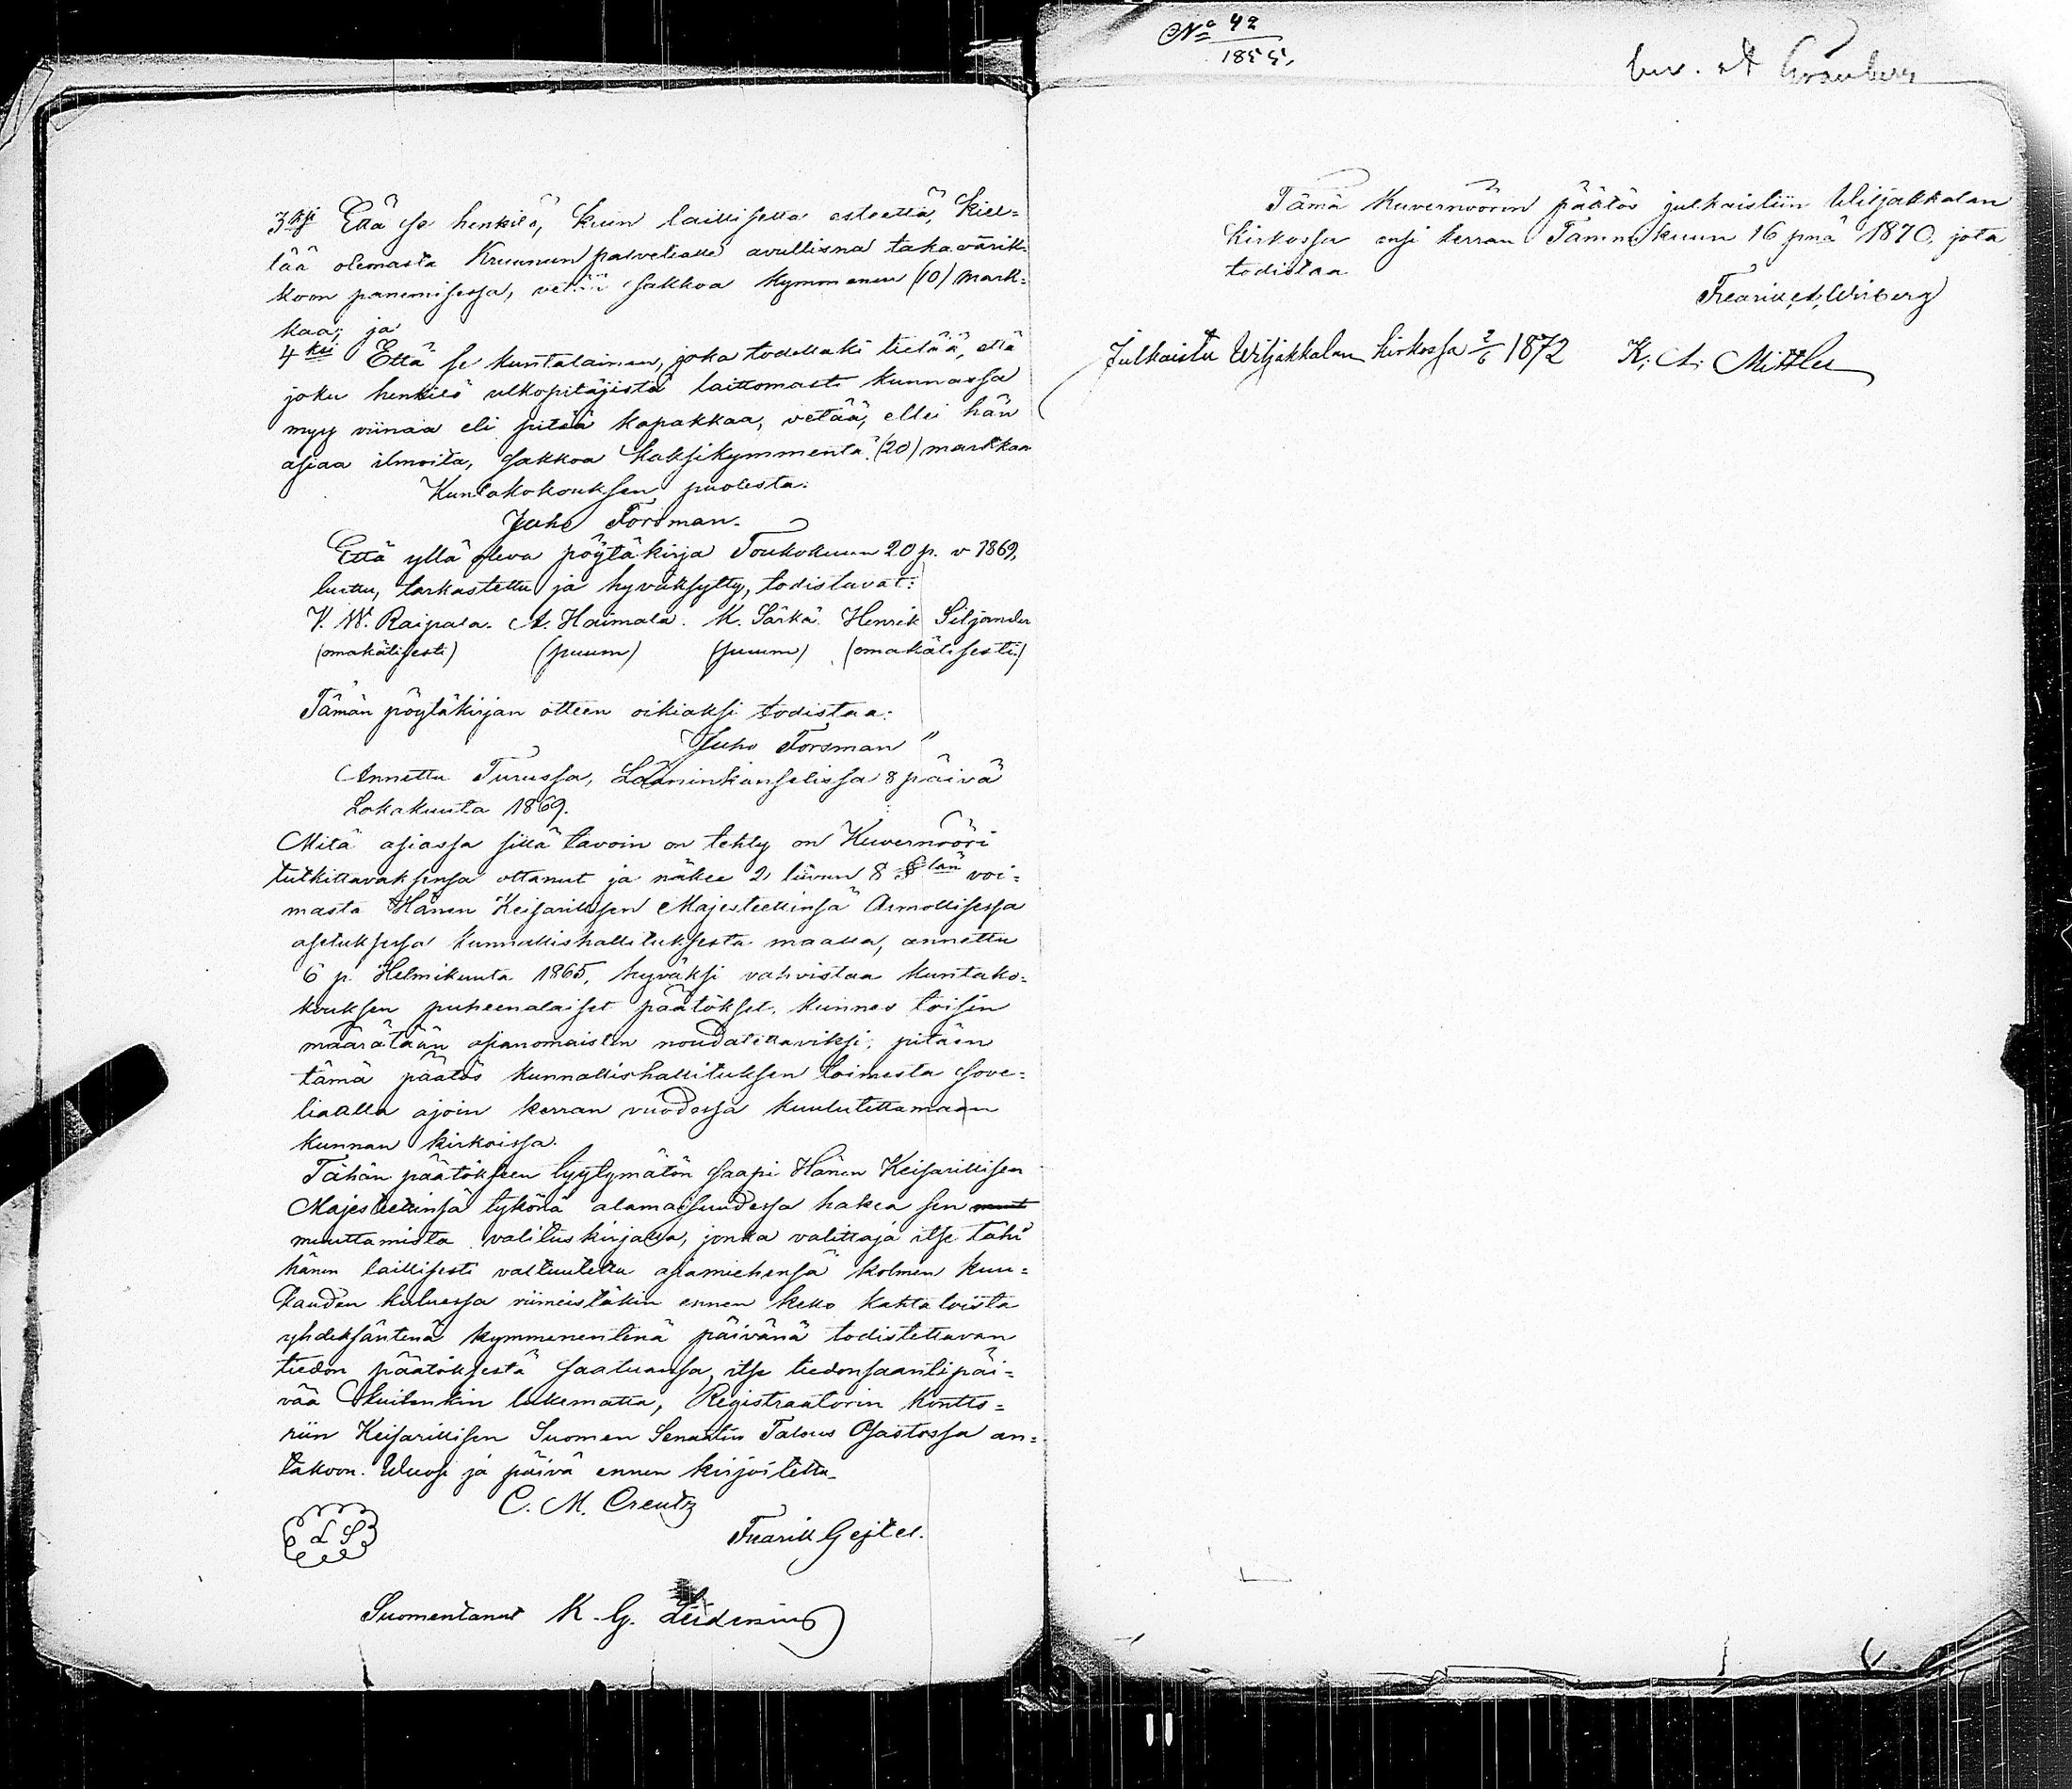 3ksi Että se henkilö, kuin laillisetta esteettä, kiel=
tää olemasta Kruunun palvelialle avullisna takavärik=
koon panemisessa, vetää sakkoa kymmenen (10) mark=
kaa; ja
4ksi Että se kuntalainen, joka todellaki tietää, että
joku henkilö ulkopitäjistä laittomasti kunnassa
myy viinaa eli pitää kapakkaa, vetää, ellei hän
asiaa ilmoita, sakkoa kaksikymmentä (20) markkaa
Kuntakokouksen puolesta:
Juho Forsman.
Että yllä oleva pöytäkirja Toukokuun 20 p. v 1869,
luettu, tarkastettu ja hyväksytty, todistavat:
V. W. Raipala. A. Haimala. M. Särkä. Henrik Siljander
(omakätisesti) (puum) (puum) (omakätisesti)
Tämän pöytäkirjan otteen oikiaksi todistaa:
Juho Forsman"
Annettu Turussa, Lääninkanselissa 8 päivä
Lokakuuta 1869.
Mitä asiassa sillä tavoin on tehty on Kuvernööri
tutkittavaksensa ottanut ja näkee 2 luvun 8 §län voi=
masta Hänen Keisarillisen Majesteettinsä Armollisessa
asetuksessa kunnallishallituksesta maalla, annettu
6 p. Helmikuuta 1865, hyväksi vahvistaa kuntako=
kouksen puheenalaiset päätökset, kunnes toisin
määrätään asianomaisten noudatettaviksi; pitäen
tämä päätös kunnallishallituksen toimesta sove=
liaalla ajoin kerran vuodessa kuulutettamaan
kunnan kirkoissa.
Tähän päätökseen tyytymätön saapi Hänen Keisarillisen
Majesteetinsä tykönä alamaisuudessa hakea sen muut
muuttamista valituskirjalla, jonka valittaja itse tahi
hänen laillisesti valtuutettu asiamiehensä kolmen kuu=
kauden kuluessa viimeistäkin ennen kello kahtatoista
yhdeksäntenä kymmenentenä päivänä todistettavan
tiedon päätöksestä saatuansa, itse tiedonsaantipäi=
vää kuitenkin lukematta, Registraatorin kontto=
riin Keisarillisen Suomen Senaatin Talous Osastossa an=
takoon. Vuosi ja päivä ennen kirjoitettu.
C. M. Creutz
L S
Fredrik Gejtel.
Suomentanut K. G. Leidenius
No 42
1855.
Tämä Kuvernöörin päätös julkaistiin Wiljakkalan
kirkossa ensi kerran Tammikuun 16 pnä 1870. jota
todistaa
Fredrik A. Wirberg
Julkaistu Wiljakkalan kirkossa 2/6 1872 K. A. Mittler